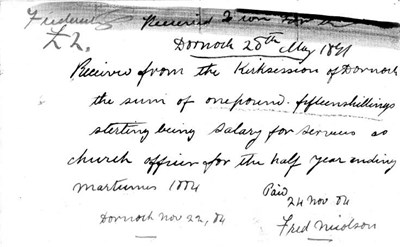 Frederick Received
£2.
Dornoch 20th May 18
Received from the Kirksession of Dornoch
the sum of onepound fifteenshillings
sterling being salary for servius as
church officer for the half year ending
martinmis 1884
Paid
24 Nov 84
Dornoch Nov 22, 84
Fred Nicolson